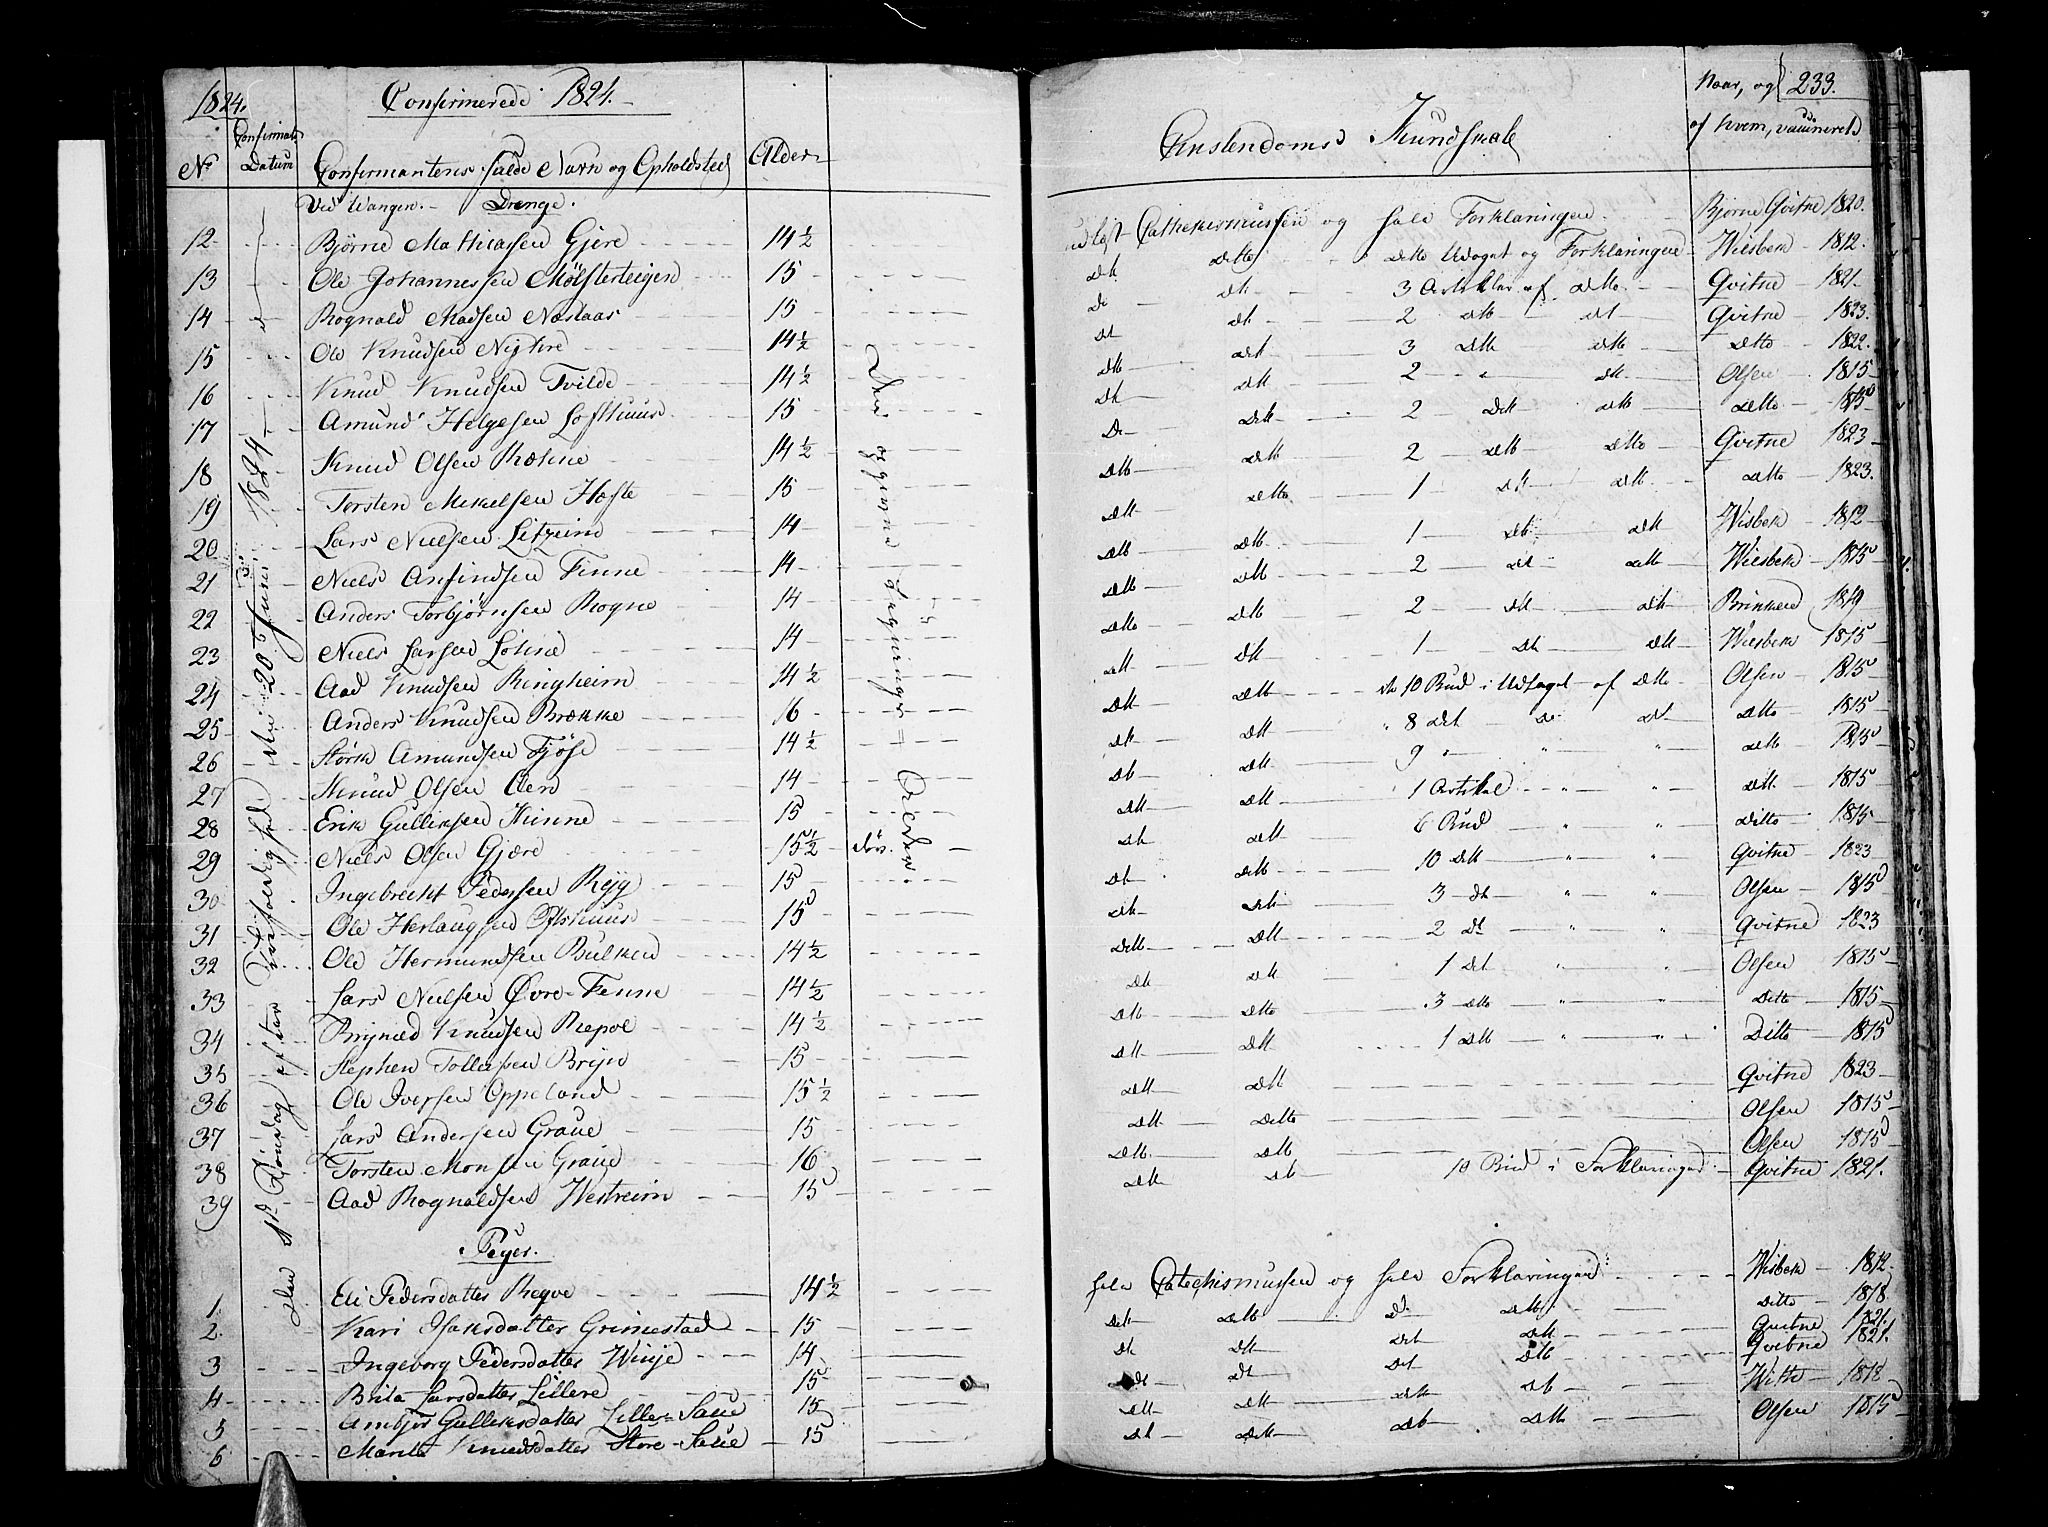 1824.
Confirmerede 1824.
No Confirmat. Datum Confirmantens fulde Navn og Opholdsted Alder
Ved Wangen. Drenge.
12 Bjørne Mathiassen Gjere 14 1/2
13 Ole Johannessen Mølsterteigen 15
14 Rognald Madsen Næslaas 15
15 Ole Knudsen 14 1/2
16 Knud Knudsen Tvilde 14 1/2
17 Amund Helgesen Lofthuus 15
18 Knud Olsen Rokne 14 1/2
19 Torsten Mikelsen Hæfte 15
20 Lars Nielsen 14
21 Niels Anfindsen Finne 14
22 Anders Torbjørnsen Rogne 14
23 Niels Larsen Løkne 14
24 Aad Knudsen Ringheim 14 1/2
25 Anders Knudsen Brække 16
26 Størk Amundsen Fjøse 14 1/2
27 Knud Olsen 14
28 Erik Gulliksen Hinne 15
29 Niels Olsen Gjære 15 1/2 døv.
30 Ingebrecht Pedersen Rijg 15
31 Ole Herlaugsen 15
32 Ole Hermundsen Bulken 14 1/2
33 Lars Nielsen Øvre-Finne 14 1/2
34 Brynild Knudsen Repve 14 1/2
35 Stephen Tollefsen Bryn 15
36 Ole Iversen Oppeland 15 1/2
37 Lars Andersen Graue 15
38 Torsten Monsen Graue 16
39 Aad Rognaldsen Hestreim 15
Piger.
1 Eli Pedersdatter Reqve 14 1/2
2 Kari Isaksdatter Grimestad 15
3 Ingeborg Pedersdatter Winje 14
4 Brita Larsdatter Lillere 15
5 Ambjør Gulleksdatter Lille-Saue 15
6 Marita Knudsdatter Store-Saue 15
den 1ste Søndag efter Trefoldighed den 20de Junii 1824
Den opgivne Orden.
Christendoms Kundskab
Naar, og af hvem, vaccineret
233.
udlæst Cathekismussen og hele Forklaringen Bjørne Gvitne 1820.
Dt Ditto Ditto Udtoget og Forklaringen Wiesbek 1812.
Dt Dt 3 Artikler af Ditto Qvitne 1821.
Dt Dt 2 Dtto Dt Qvitne 1823.
Dtto Dtt 3 Dtto Dtto Ditto 1822.
Dt Dtt 2 " Dtt Olsen 1815
Dt Dtt 2 Dtt Dtto Ditto 1815
Dtto Dtt 2 Dtto Ditto Qvitne 1823
Dtt Ditto 1 Dtt Dtto Ditto 1823.
Dtto Dtto 1 Dt Dtt Wisbek 1812
Dtto Dtto 2 Dt Ditto Wiesbek 1815
Ditto Dtto 2 Dtt Dtt Brinken 1819
Dtt Dtt 1 Dt Dtt Wiesbek 1815
Dtt Dtto 10 Bud i Udtoget af Ditto Olsen 1815
Dtt Dtt " 8 Dtt Dt Dt Ditto 1815
Dtto Dtt 9 " " " Ditto 1815
Dtt Dtt 1 Artikel " " Ditt. 1815
Dtt Dtt 6 Bud " " Ditto 1815
Dt Dtto 10 Dtt " " Qvitne 1823
Dtt Dtt 3 Dt " " Olsen 1815
Ditto Dtt 2 Dt " " Qvitne 1823
Dtt Dtt 1 Dtt " " Olsen 1815
Dtto Ditto 3 Ditto " " Ditto 1815
Dtt Dtt 1 Dtto " " Ditto 1815
Dtt Dtt Qvitne 1823
Dtt Ditto Olsen 1815
Dtto Dtto Olsen 1815
Dtt Dtt 10 Bud i Forklaringen Qvitne 1821.
hele Catechismussen og hele Forklaringen Wisbek 1812.
Dtt Dtto Dt. Dtto Ditto 1818.
Dt Dtt Dtt Dtt Qvitne 1821.
Dt Dt Dtt Dtto Qvitne 1821.
Dtt Dtt Dtt Dtt 1818
Dt Dtt Dtto Dtto Olsen 1815